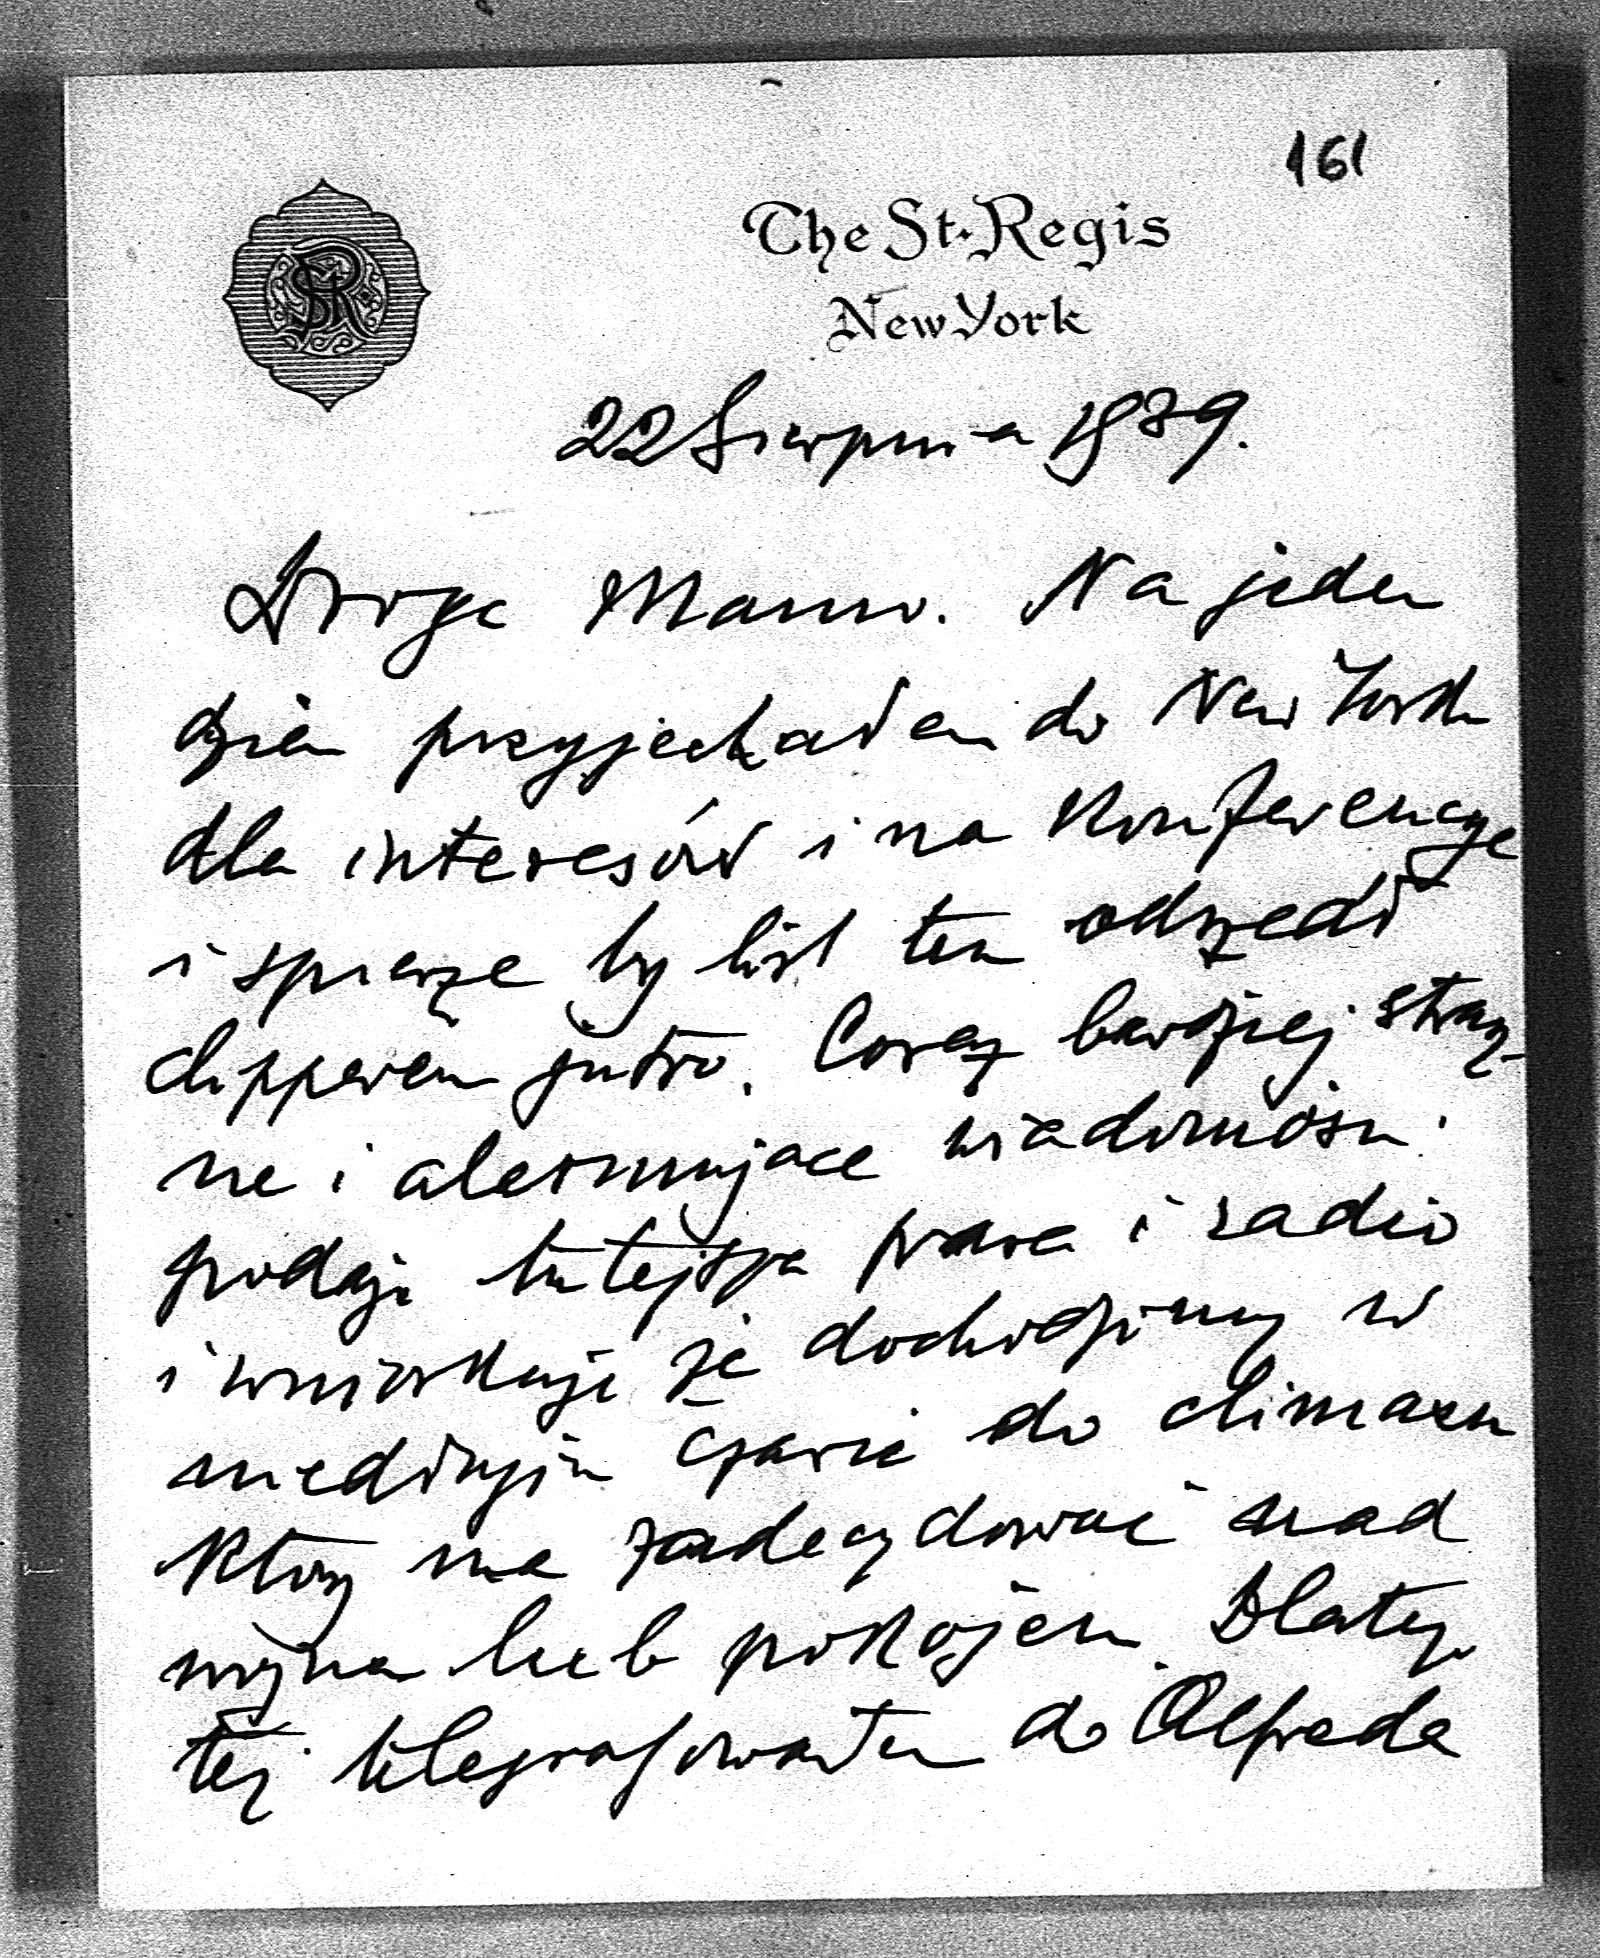 161
The St. Regis
New York
22 Sierpnia 1939.
Droga Mamo. Na jeden
dzień przyjechałem do New Yorku
dla interesów i na Konferencye
i spieszę by list ten odszedł
clipperem jutro. Coraz bardziej stras
ne i alarmujące wiadomości
podaje tutejsza prasa i radio
i wnioskuję że dochodzimy w
niedługim czasie do climaxu
który ma zadecydować nad
wojną lub pokojem. Dlatego
też telegrafowałem do Alfreda